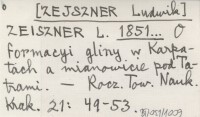 [ZEJSZNER Ludwik]
ZEISZNER L. 1851... O
formacyi gliny w Karpa-
tach a mianowicie pod Ta-
trami. — Rocz. Tow. Nauk.
Krak. 21: 49-53.